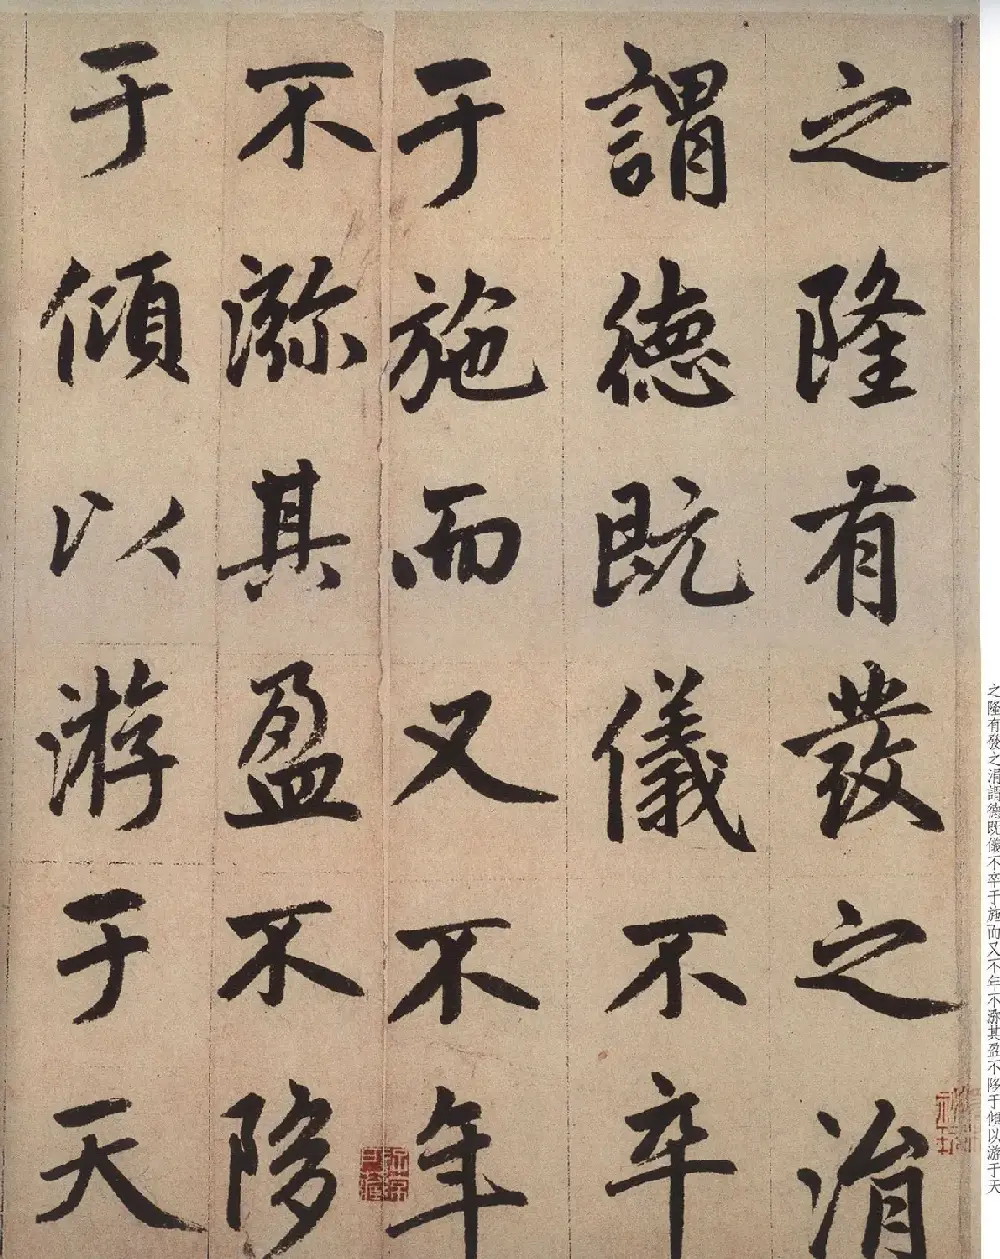 之隆有發之涓
謂德既儀不卒
于施而又不年
不㴽其盈不陊
于傾以游于天
之隆有發之涓謂德既儀不卒于施而又不年不㴽其盈不陊于傾以游于天